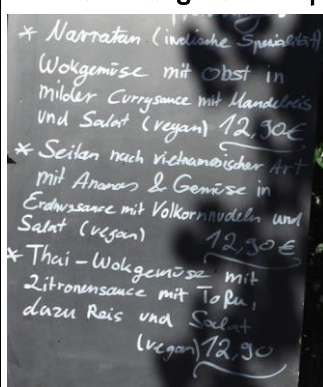 * Narratan (indische Spezialität)
Wokgemüse mit Obst in
milder Currysauce mit Mandelreis
und Salat (vegan) 12,90€
* Seitan nach vietnamesischer Art
mit Ananas & Gemüse in
Erdnussauce mit Volkornnudeln und
Salat (vegan)
12,90€
* Thai-Wokgemüse mit
Zitronensauce mit Tofu,
dazu Reis und Salat
(vegan) 12,90